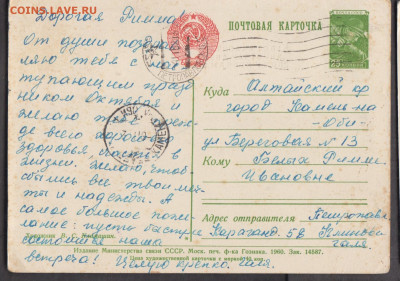 COINS.SU
COINS.LAVE.RU
Дорогая Римма
От души поздрав
ляю тебя с нас
тупающим празд
ником Октября и
желаю
всего дорого
здоровья, счастья в
жизни. Желаю, чтоб
сбылись все твои меч
ты и надежды. А
самое большое поже
лание: пусть быстрее
состоится наша
встреча! Целую крепко. Галя.
ПОЧТОВАЯ КАРТОЧКА
Куда Алтайский кр
город Камень-на
Оби-
ул Береговая № 13
Кому Белых Римме
Ивановне
Адрес отправителя Петропавл
Караганд. 58
Галя
Издание Министерства связи СССР. Моск. печ. ф-ка Гознака. 1960. Зак. 14587.